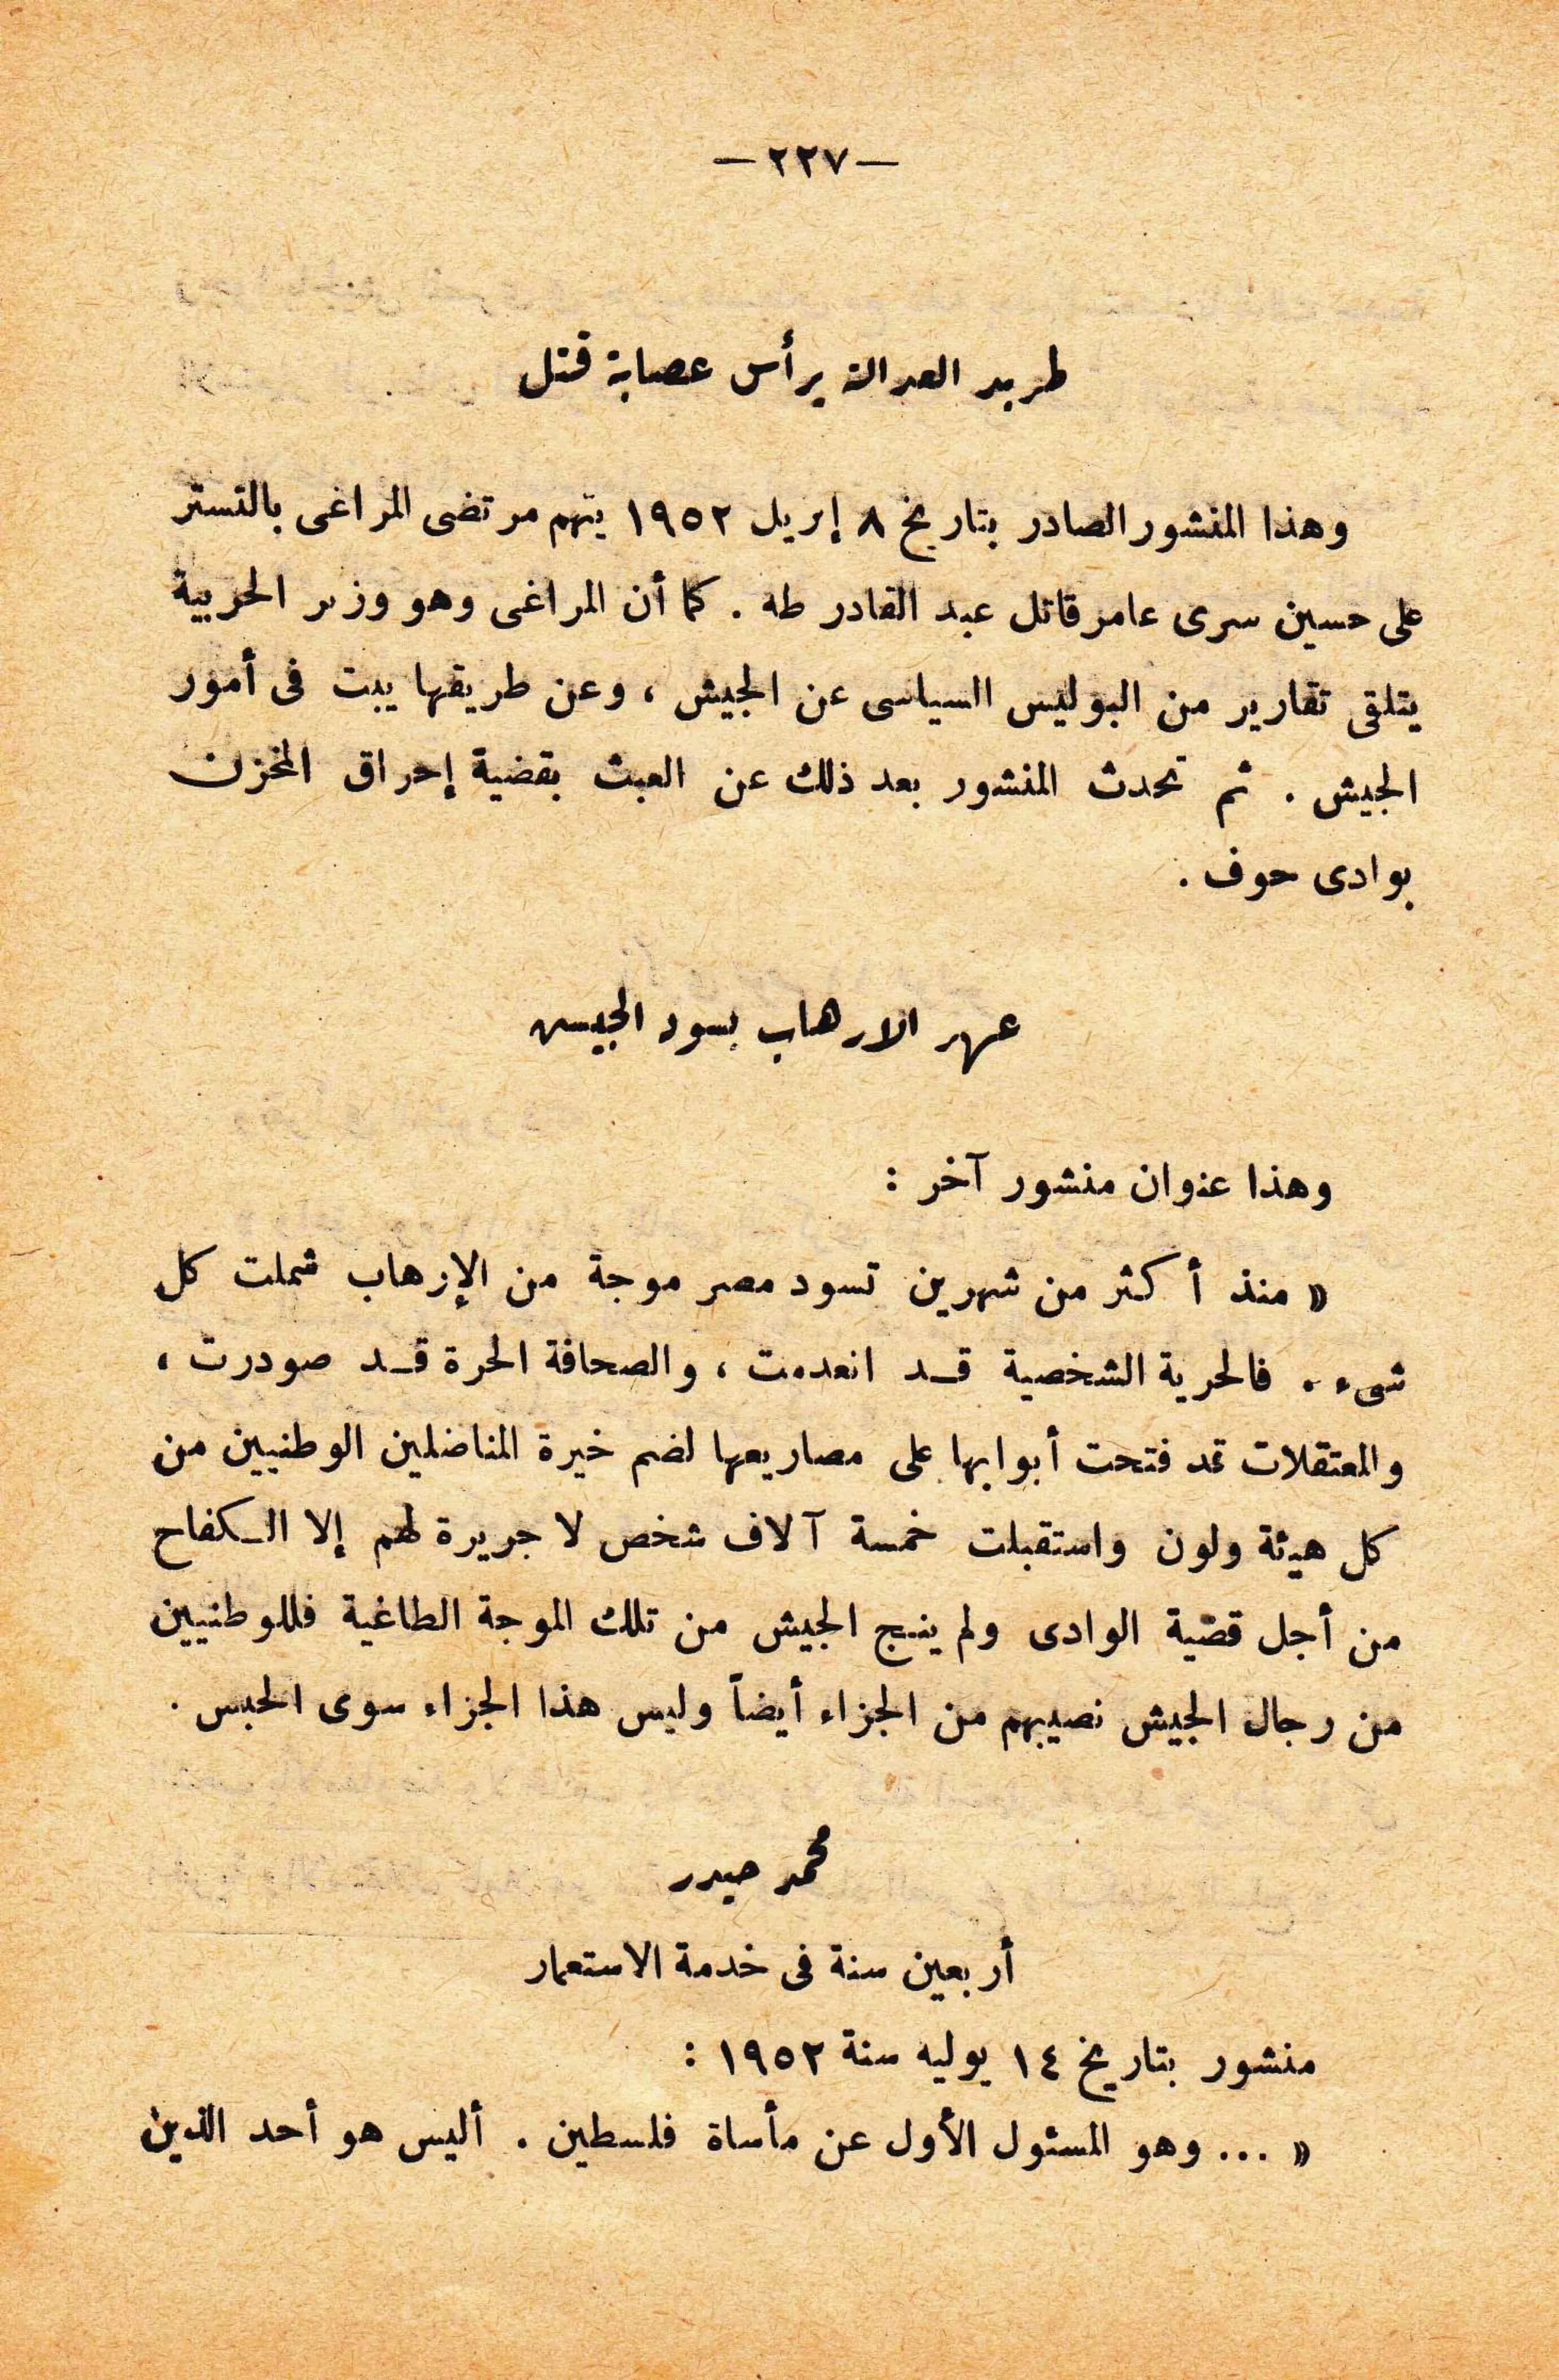 — ٢٢٧ —
طريد العدالة يرأس عصابة قتل
وهذا المنشور الصادر بتاريخ ٨ إبريل ١٩٥٢ يتهم مرتضى المراغى بالتستر
على حسين سرى عامر قاتل عبد القادر طه . كما أن المراغى وهو وزير الحربية
يتلقى تقارير من البوليس السياسى عن الجيش ، وعن طريقها يبت فى أمور
الجيش . ثم تحدث المنشور بعد ذلك عن العبث بقضية إحراق المخزن
بوادى حوف .
عهد الارهاب يسود الجيش
وهذا عنوان منشور آخر :
« منذ أكثر من شهرين تسود مصر موجة من الإرهاب شملت كل
شىء . فالحرية الشخصية قـد انعدمت ، والصحافة الحرة قـد صودرت ،
والمعتقلات قد فتحت أبوابها على مصاريعها لضم خيرة المناضلين الوطنيين من
كل هيئة ولون واستقبلت خمسة آلاف شخص لا جريرة لهم إلا الـكفاح
من أجل قضية الوادى ولم ينج الجيش من تلك الموجة الطاغية فللوطنيين
من رجال الجيش نصيبهم من الجزاء أيضاً وليس هذا الجزاء سوى الحبس .
محمد حيدر
أربعين سنة فى خدمة الاستعمار
منشور بتاريخ ١٤ يوليه سنة ١٩٥٢ :
« ... وهو المسئول الأول عن مأساة فلسطين . أليس هو أحد الذين